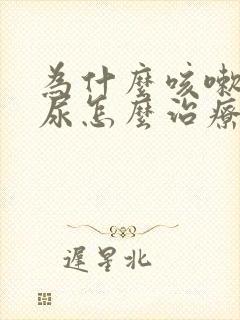 為什麼咳嗽
尿怎麼治療
遲星北